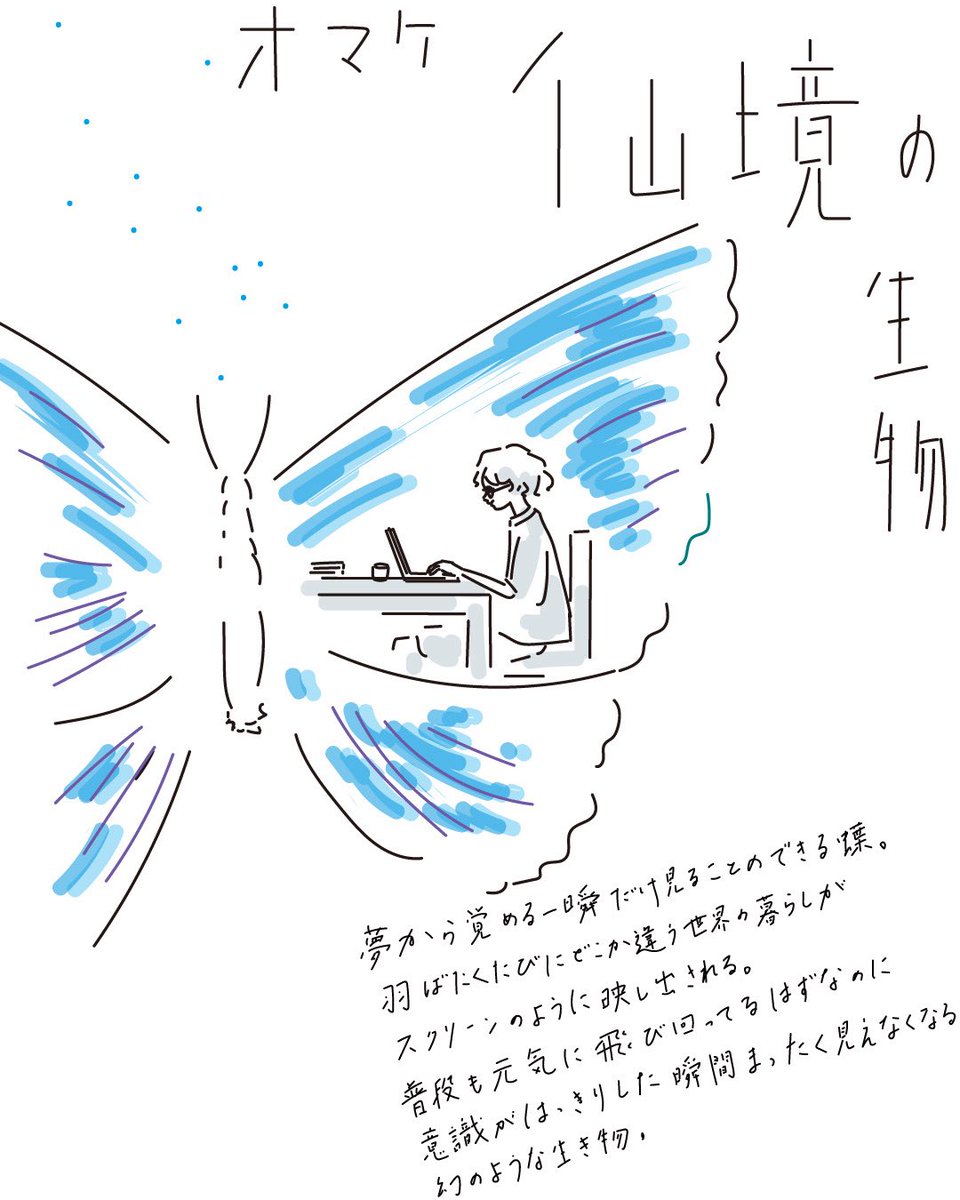 オマケ
仙境の
生物
夢から覚める一瞬だけ見ることのできる蝶。
羽ばたくたびにどこか違う世界の暮らしが
スクリーンのように映し出される。
普段も元気に飛び回ってるはずなのに
意識がはっきりした瞬間まったく見えなくなる
幻のような生き物。